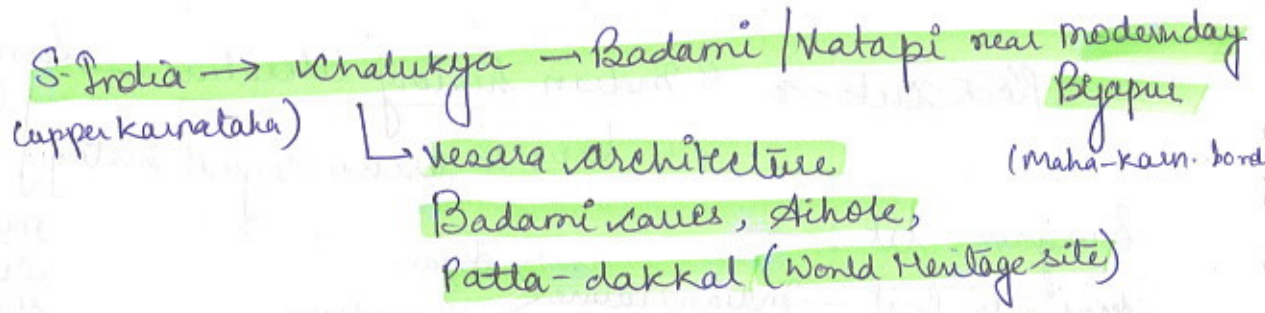 S-India → Chalukya → Badami / Vatapi near modernday
Bijapur
(upper Karnataka)
(Maha-Karn. bord
↳ Vesara architecture
Badami caves, Aihole,
Patta-dakkal (World Heritage site)